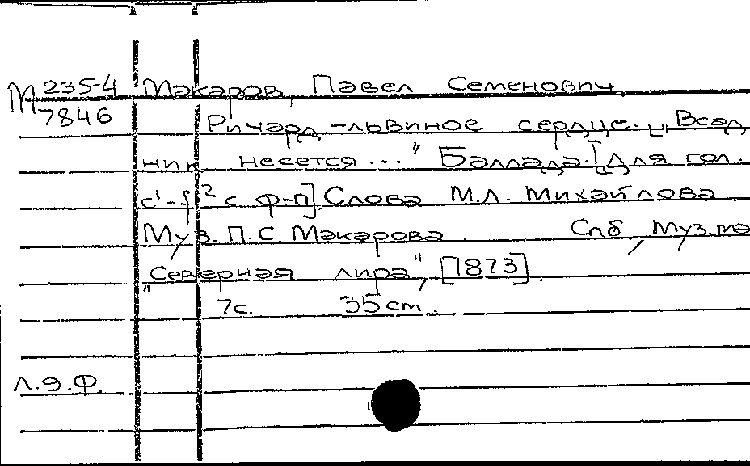 М 235-4 Макаров, Павел Семенович
7846 Ричард-львиное сердце. „Всад
ник несется..." Баллада. [Для гол.
с¹-f² с ф-п]. Слова М.Л. Михайлова
Муз. П.С. Макарова. Спб, Муз. ма
„Северная лира", [1873]
7с. 35cm.
Л.Э.Ф.